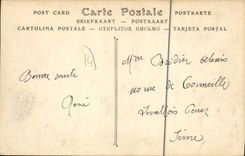 POST CARD Carte Postale POSTKARTE
BRIEFKAART — POSTKAART
CARTOLINA POSTALE — ОТКРЫТОЕ ПИСЬМО — TARJETA POSTAL
Mme Bardier Alexis
10 rue de Corneille
Bonne santé
René
Levallois Perret
Seine